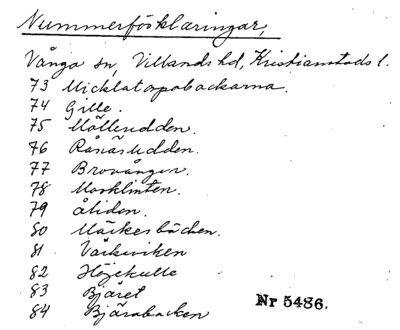 Nummerförklaringar,
Vånga sn, Villands hd, Kristianstads l.
73 Micklatorpabackarna.
74 Gille.
75 Mölleudden.
76 Rånäsudden.
77 Brovången.
78
79 åliden.
80 Märkesbäcken.
81
82 Höjekulle
83 Bjäret
84 Bjärabacken
Nr 5486.